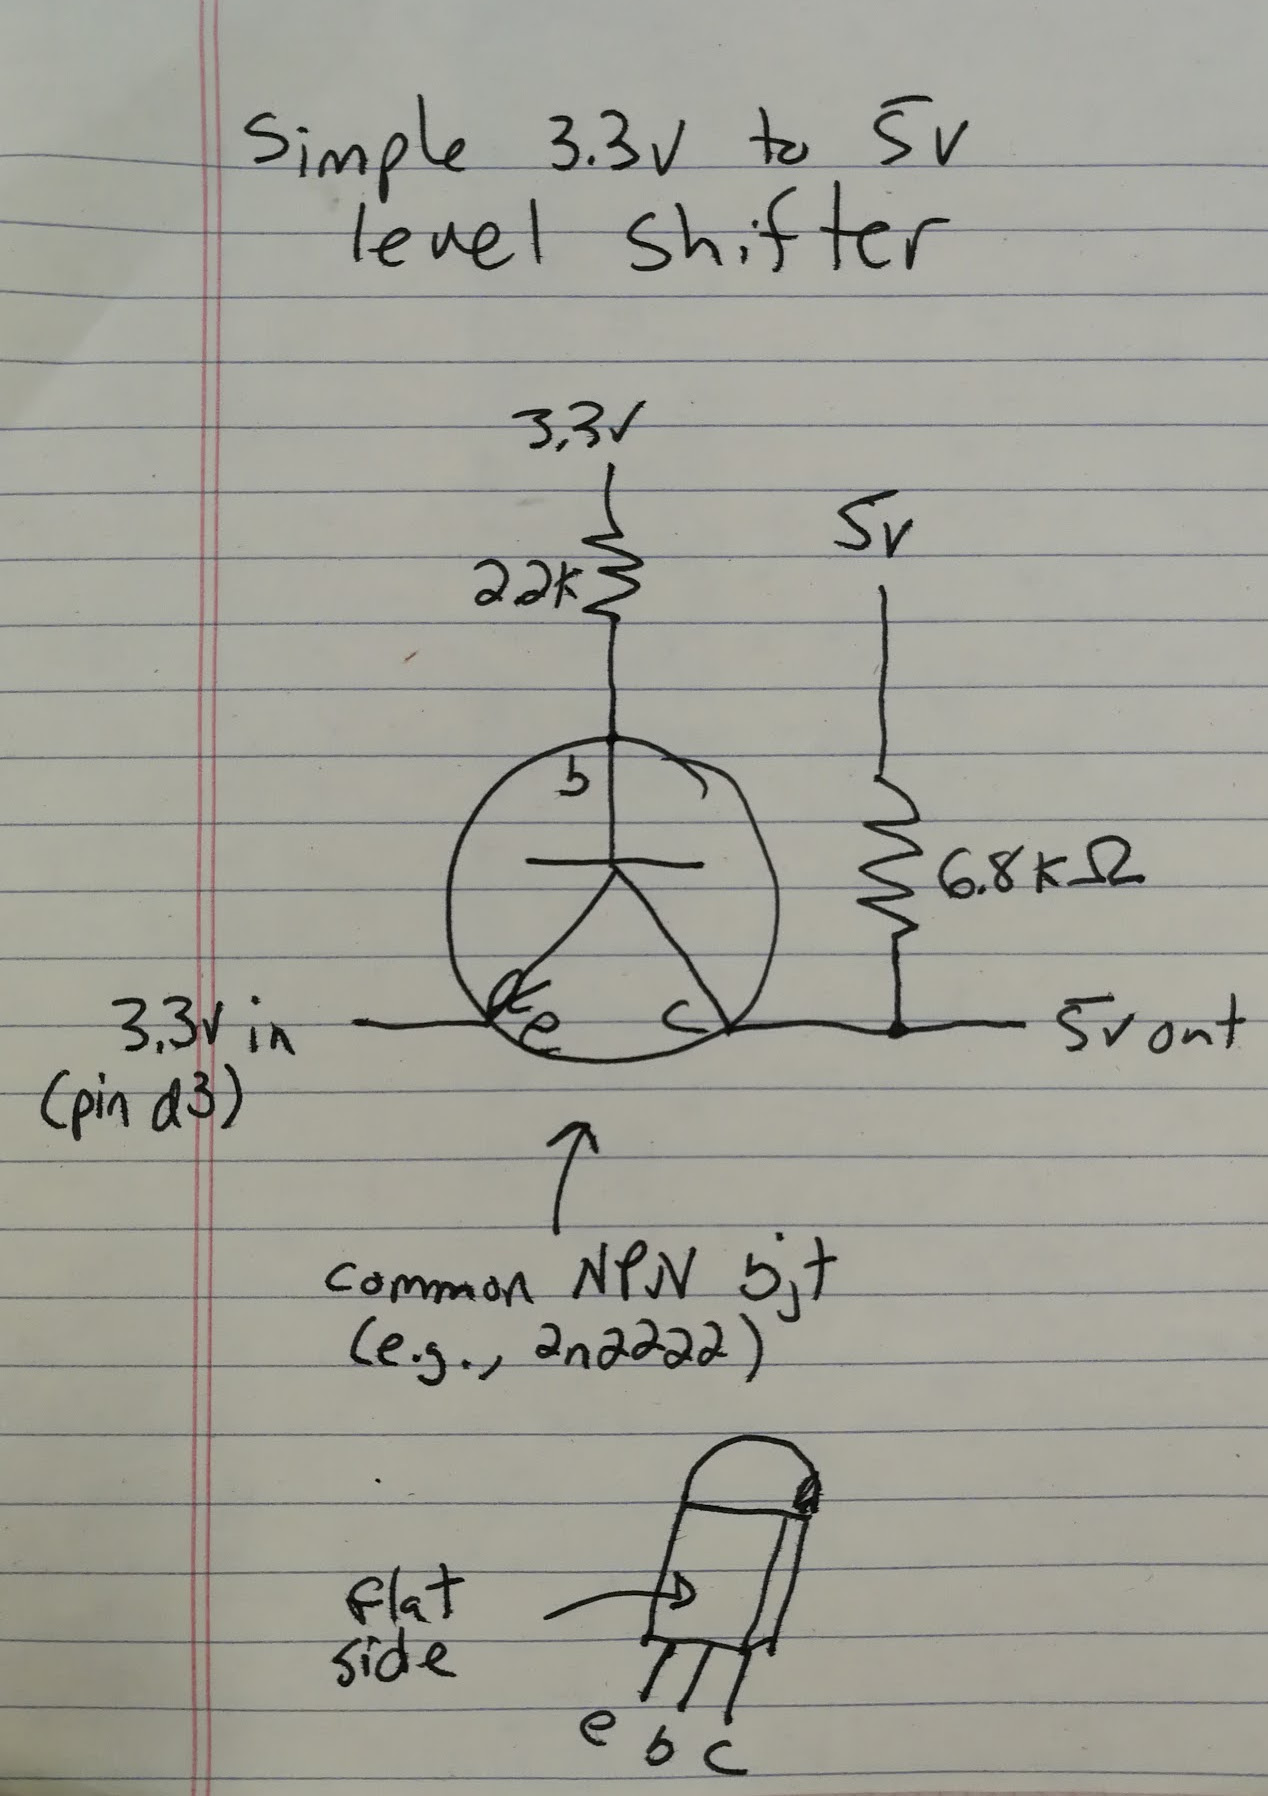 Simple 3.3v to 5v
level shifter
3.3v
5v
2.2k
b
6.8kΩ
3.3v in
e
c
5v out
(pin d3)
common NPN bjt
(e.g., 2n2222)
flat
side
e b c